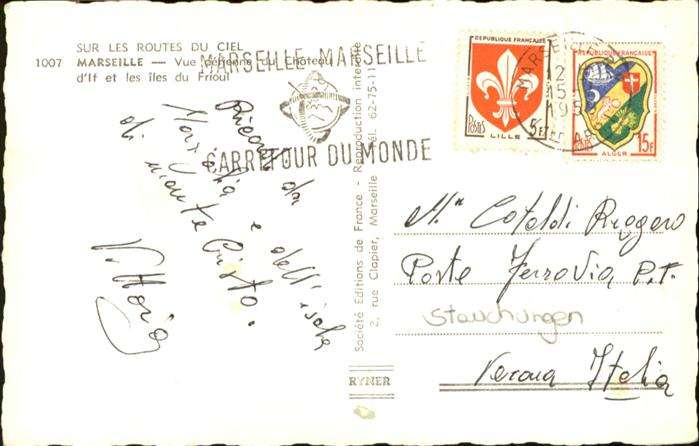 SUR LES ROUTES DU CIEL
1007 MARSEILLE — Vue aérienne du Château
d'If et les îles du Frioul
MARSEILLE-MARSEILLE
CARREFOUR DU MONDE
Ricordo da
Marsiglia e dell'isola
di Monte Cristo.
Société Editions de France - Reproduction interdite
2, rue Clapier, Marseille Tél. 62-75-11
RYNER
REPUBLIQUE FRANÇAISE
Postes 5F
LILLE
MARSEILLE
12
15
195
REPUBLIQUE FRANÇAISE
Postes 15F
ALGER
Cataldi Ruggero
Poste Ferrovia P.T.
Stauchungen
Verona Italia